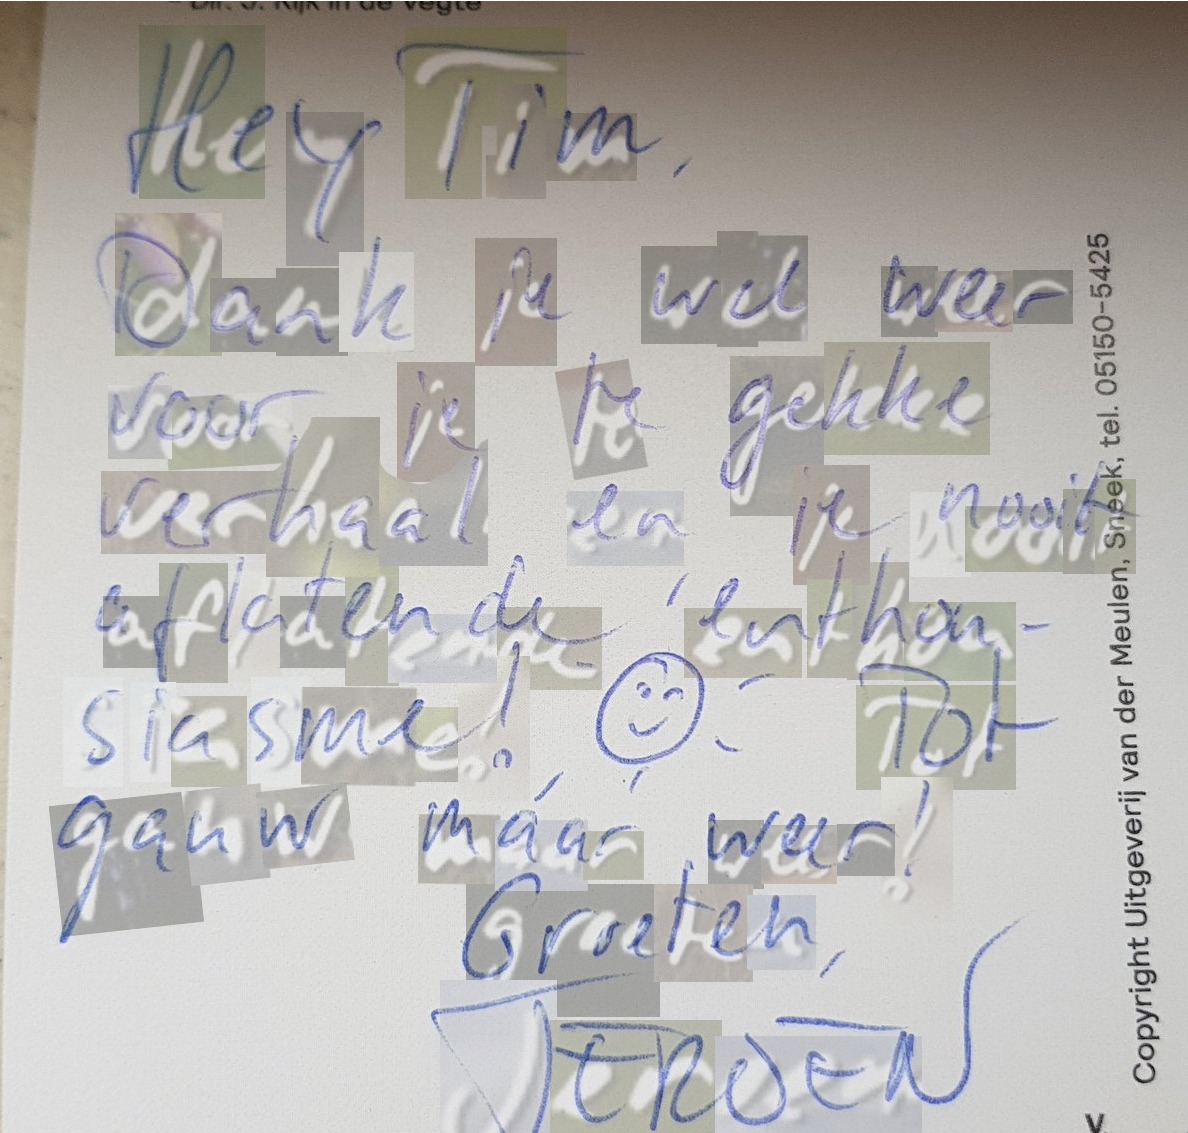 Dir. J. Rijk in de Vegte
Hey Tim,
Dank je wel weer
voor je te gekke
verhaal en je nooit
aflatende 'enthou-
siasme! Tot
gauw máár weer!
Groeten,
JEROEN
Copyright Uitgeverij van der Meulen, Sneek, tel. 05150-5425